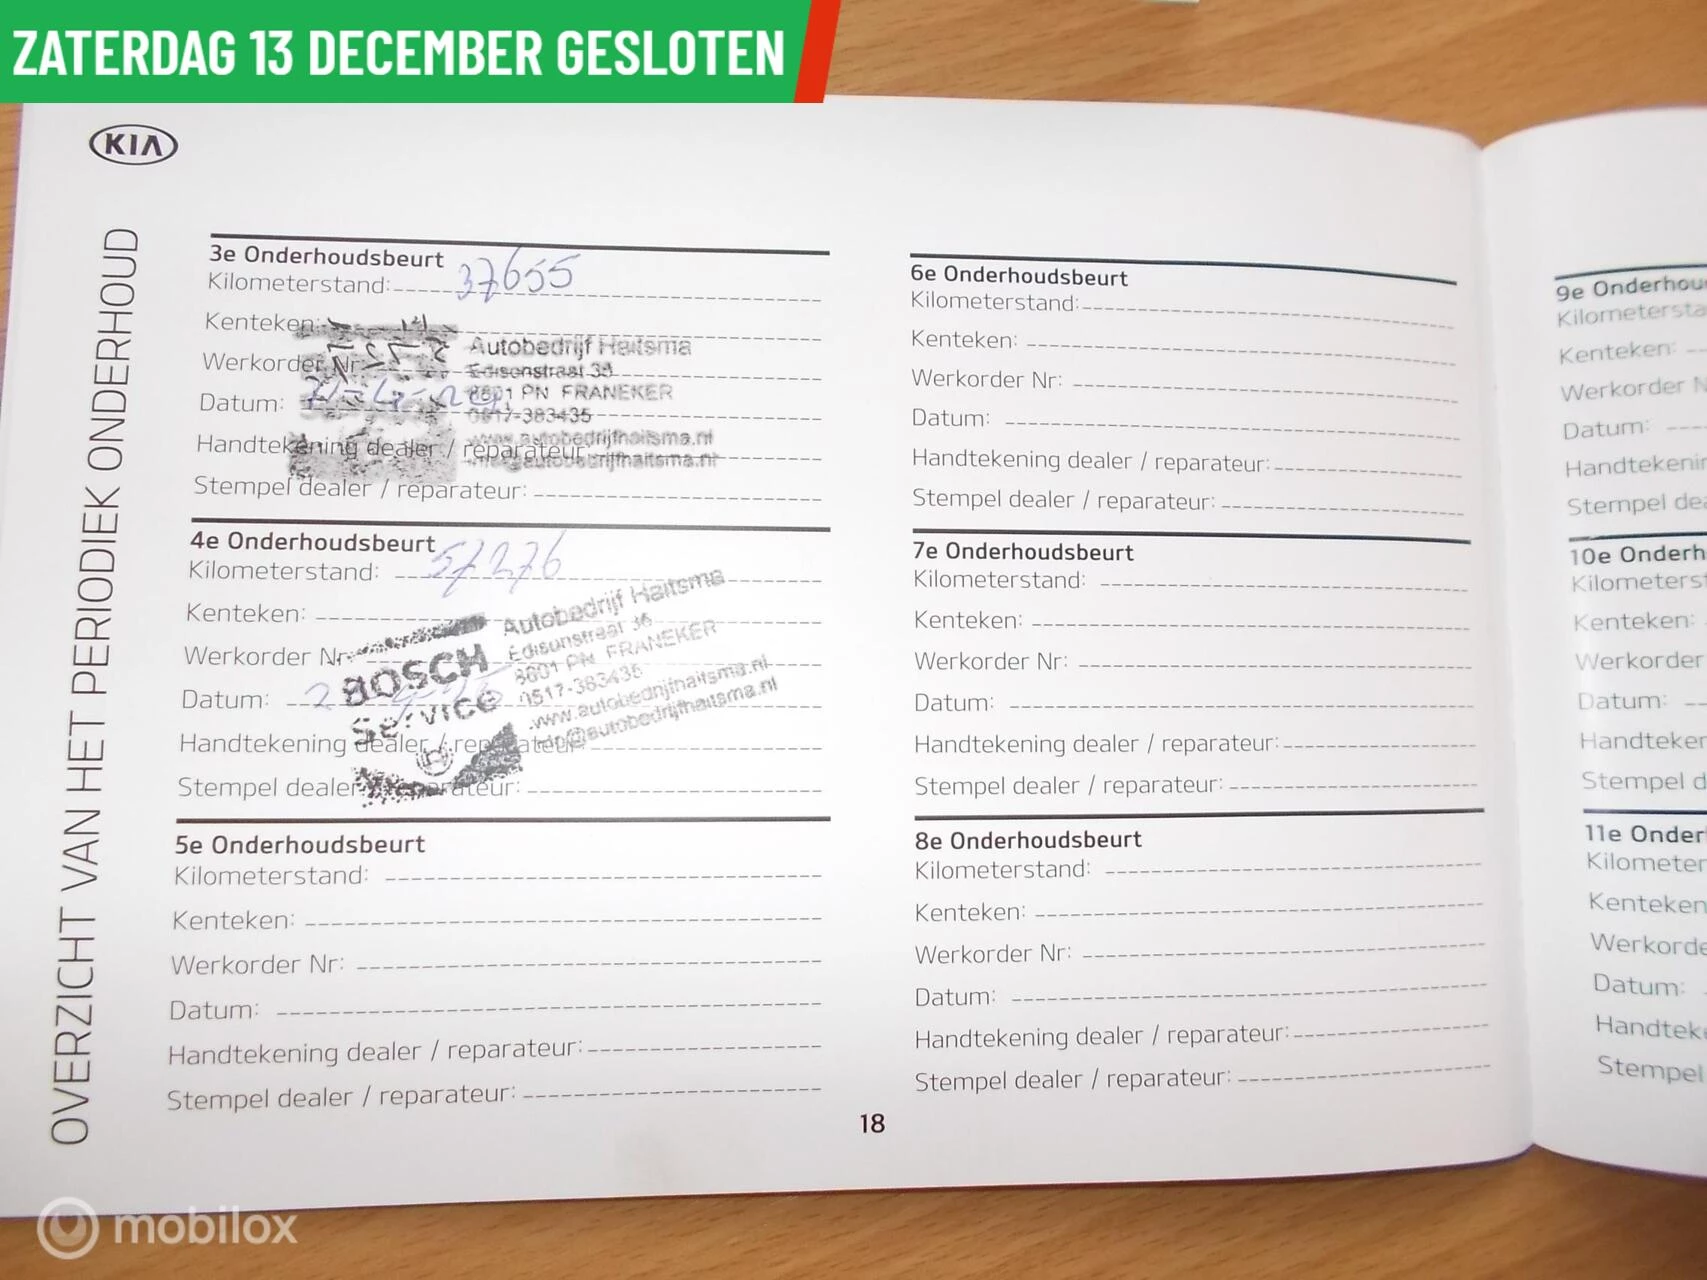 ZATERDAG 13 DECEMBER GESLOTEN
KIA
OVERZICHT VAN HET PERIODIEK ONDERHOUD
3e Onderhoudsbeurt
Kilometerstand: 37655
Kenteken:
Werkorder Nr
Datum:
Handtekening dealer / reparateur:
Stempel dealer / reparateur:
Autobedrijf Haitsma
Edisonstraat 36
8801 PN FRANEKER
0517-383435
www.autobedrijfhaitsma.nl
4e Onderhoudsbeurt
Kilometerstand: 57276
Kenteken:
Werkorder Nr
Datum:
Handtekening dealer / reparateur:
Stempel dealer / reparateur:
BOSCH
Service
Autobedrijf Haitsma
Edisonstraat 36
8801 PN FRANEKER
0517-383435
www.autobedrijfhaitsma.nl
info@autobedrijfhaitsma.nl
5e Onderhoudsbeurt
Kilometerstand:
Kenteken:
Werkorder Nr:
Datum:
Handtekening dealer / reparateur:
Stempel dealer / reparateur:
6e Onderhoudsbeurt
Kilometerstand:
Kenteken:
Werkorder Nr:
Datum:
Handtekening dealer / reparateur:
Stempel dealer / reparateur:
7e Onderhoudsbeurt
Kilometerstand:
Kenteken:
Werkorder Nr:
Datum:
Handtekening dealer / reparateur:
Stempel dealer / reparateur:
8e Onderhoudsbeurt
Kilometerstand:
Kenteken:
Werkorder Nr:
Datum:
Handtekening dealer / reparateur:
Stempel dealer / reparateur:
18
9e Onderhou
Kilometersta
Kenteken:
Werkorder N
Datum:
Handtekenin
Stempel dea
10e Onderh
Kilometerst
Kenteken:
Werkorder
Datum:
Handteker
Stempel d
11e Onder
Kilometer
Kenteken
Werkorde
Datum:
Handteke
Stempel
mobilox